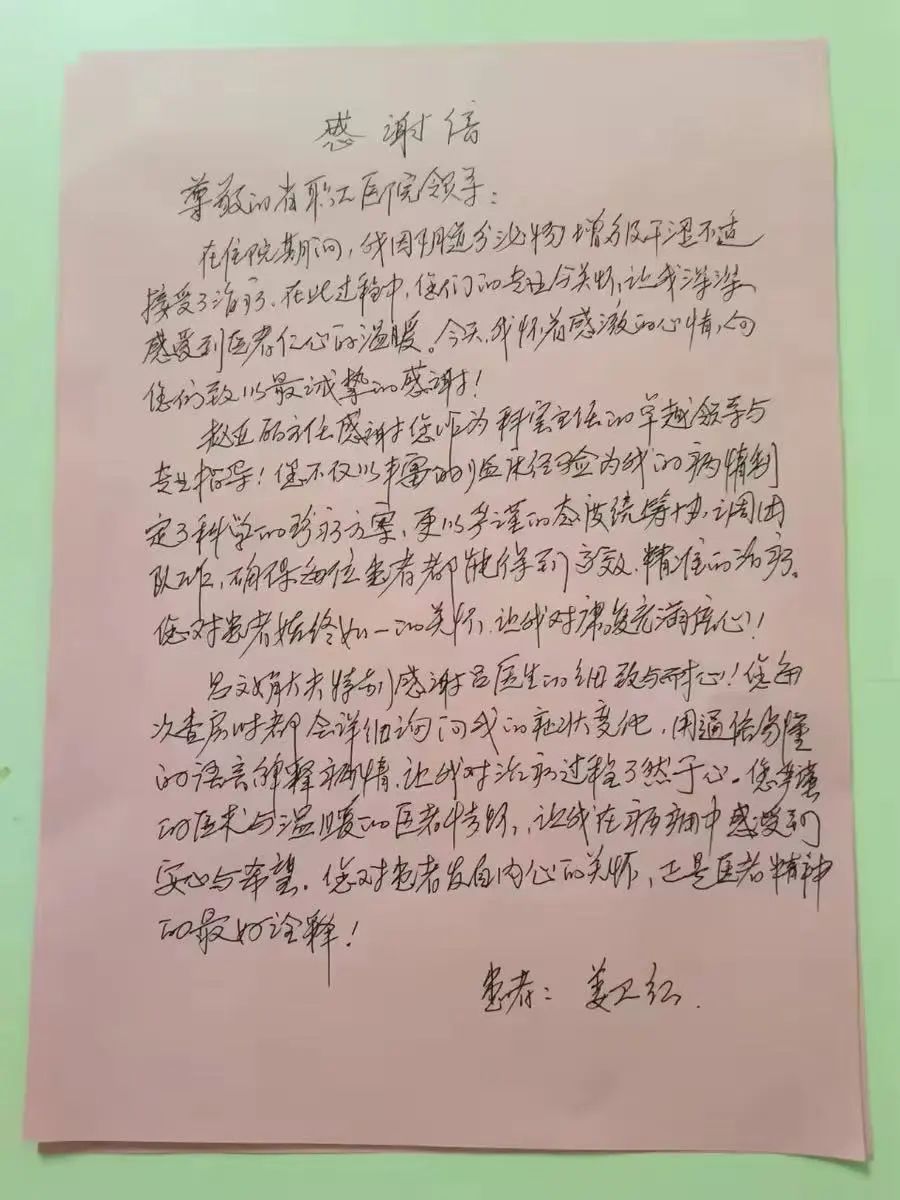 感谢信
尊敬的省职工医院领导：
在住院期间，我因阴道分泌物增多及干涩不适
接受了治疗。在此过程中，您们的专业与关怀，让我深深
感受到医者仁心的温暖。今天，我怀着感激的心情，向
您们致以最诚挚的感谢！
赵亚丽主任感谢您作为科室主任的卓越领导与
专业指导！您不仅以丰富的临床经验为我的病情制
定了科学的诊疗方案，更以严谨的态度统筹协调团
队工作，确保每位患者都能得到高效、精准的治疗。
您对患者始终如一的关怀，让我对康复充满信心！
吕文娟大夫特别感谢吕医生的细致与耐心！您每
次查房时都会详细询问我的症状变化，用通俗易懂
的语言解释病情，让我对治疗过程了然于心。您严谨
的医术与温暖的医者情怀，让我在病痛中感受到
安心与希望。您对患者发自内心的关怀，正是医者精神
的最好诠释！
患者：姜卫红